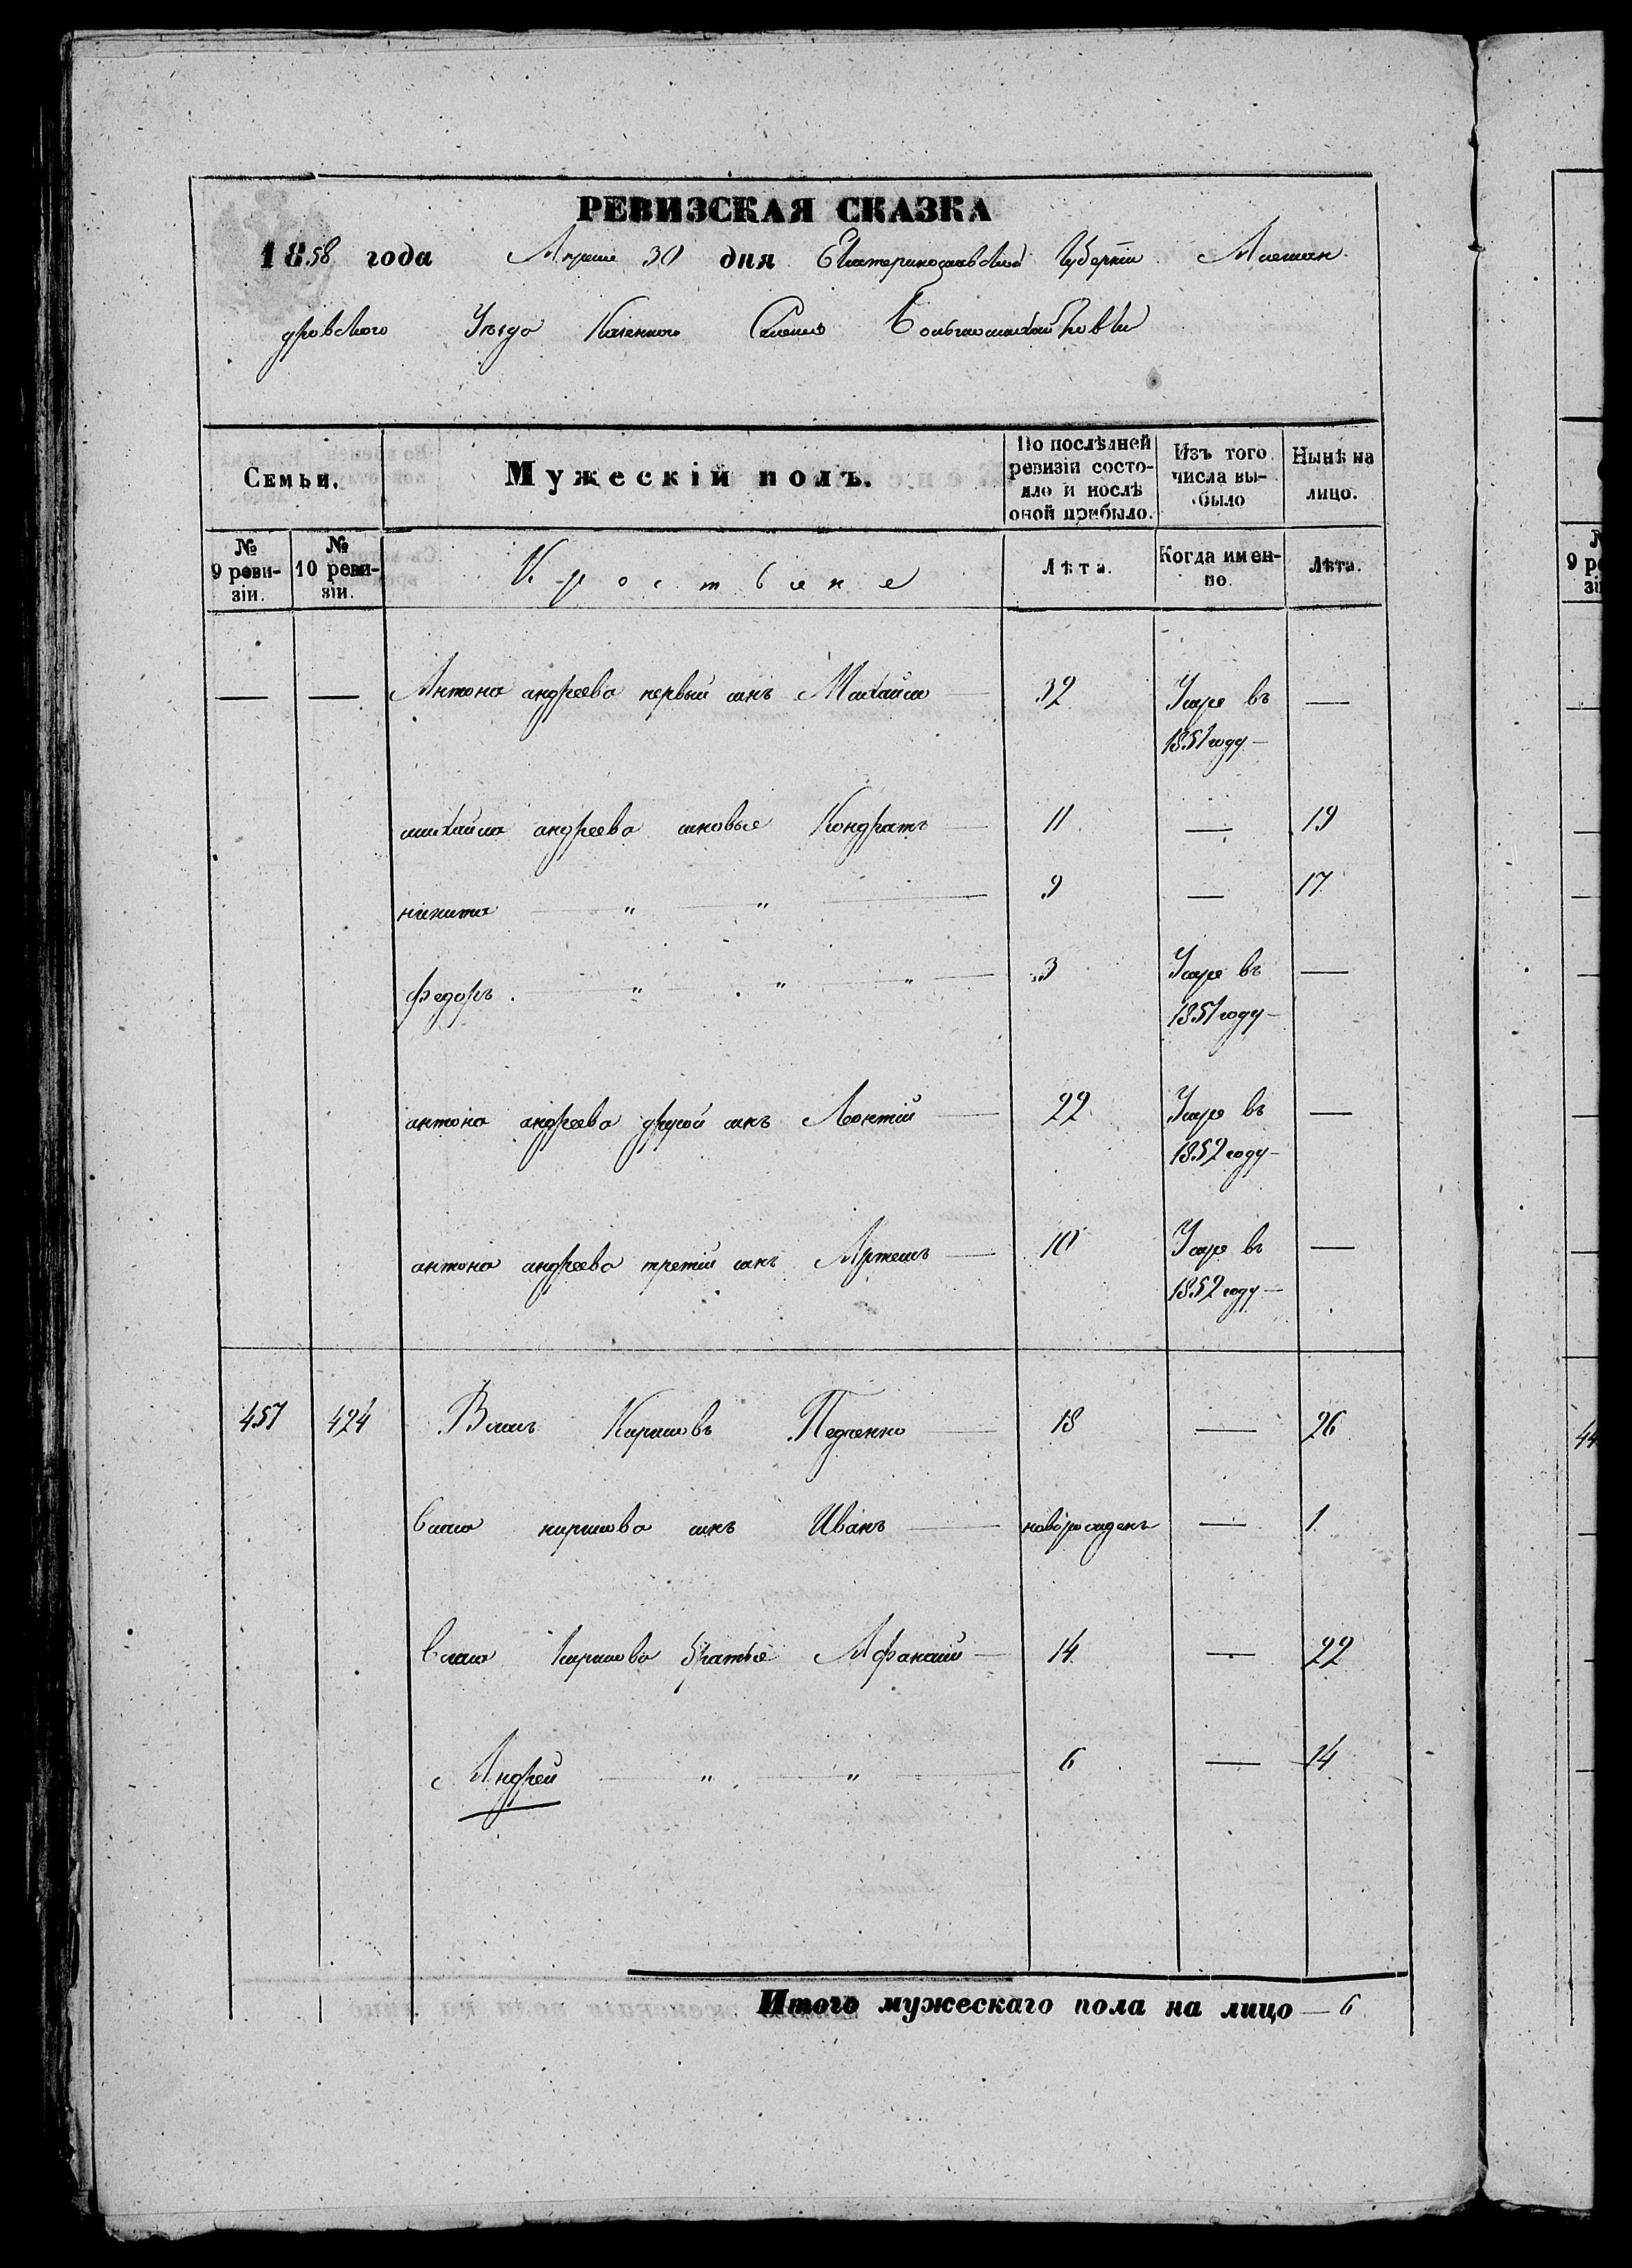 РЕВИЗСКАЯ СКАЗКА
1858 года Апреля 30 дня Екатеринославской Губерніи Алексан
дровскаго Уѣзда Казенного Селенія Большемихайловки
Семьи. Мужескій полъ. По послѣдней ревизіи состояло и послѣ оной прибыло. Изъ того числа выбыло Нынѣ на лицо.
№ 9 ревизіи. № 10 ревизіи. Крестьяне Лѣта. Когда именно. Лѣта.
— — Антона андреева первый сынъ Михайла — 32 Умре въ 1851 году — —
михайла андреева сыновье Кондратъ — 11 — 19
никита — " — " — 9 — 17
федоръ — " — " — " — 3 Умре въ 1851 году — —
антона андреева другой сынъ Леонтій — 22 Умре въ 1852 году — —
антона андреева третій сынъ Артемъ — 10 Умре въ 1852 году — —
457 424 Власъ Кириловъ Педченко — 18 — 26
власа кирилова сынъ Иванъ — новорожденъ — 1
власа кирилова братья Афанасій — 14 — 22
Андрей — " — " — 6 — 14
Итого мужескаго пола на лицо — 6